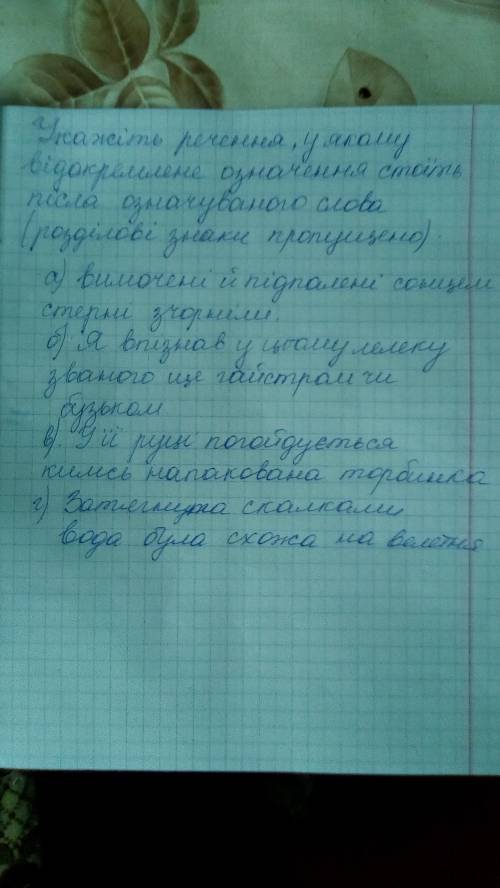 Укажіть речення, у якому
відокремлене означення стоїть
після означуваного слова
(розділові знаки пропущено).
а) вимочені й підпалені сонцем
стерні зчорніли.
б) Я впізнав у цьому лелеку
званого ще гайстром чи
бузьком
в). У її руці погойдується
кимсь напакована торбинка
г) Затягнута скалками
вода була схожа на велетня